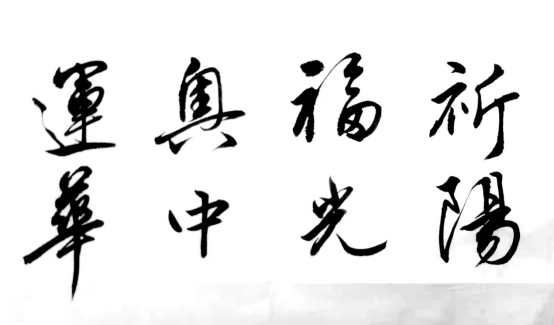 祈福奥運
陽光中華